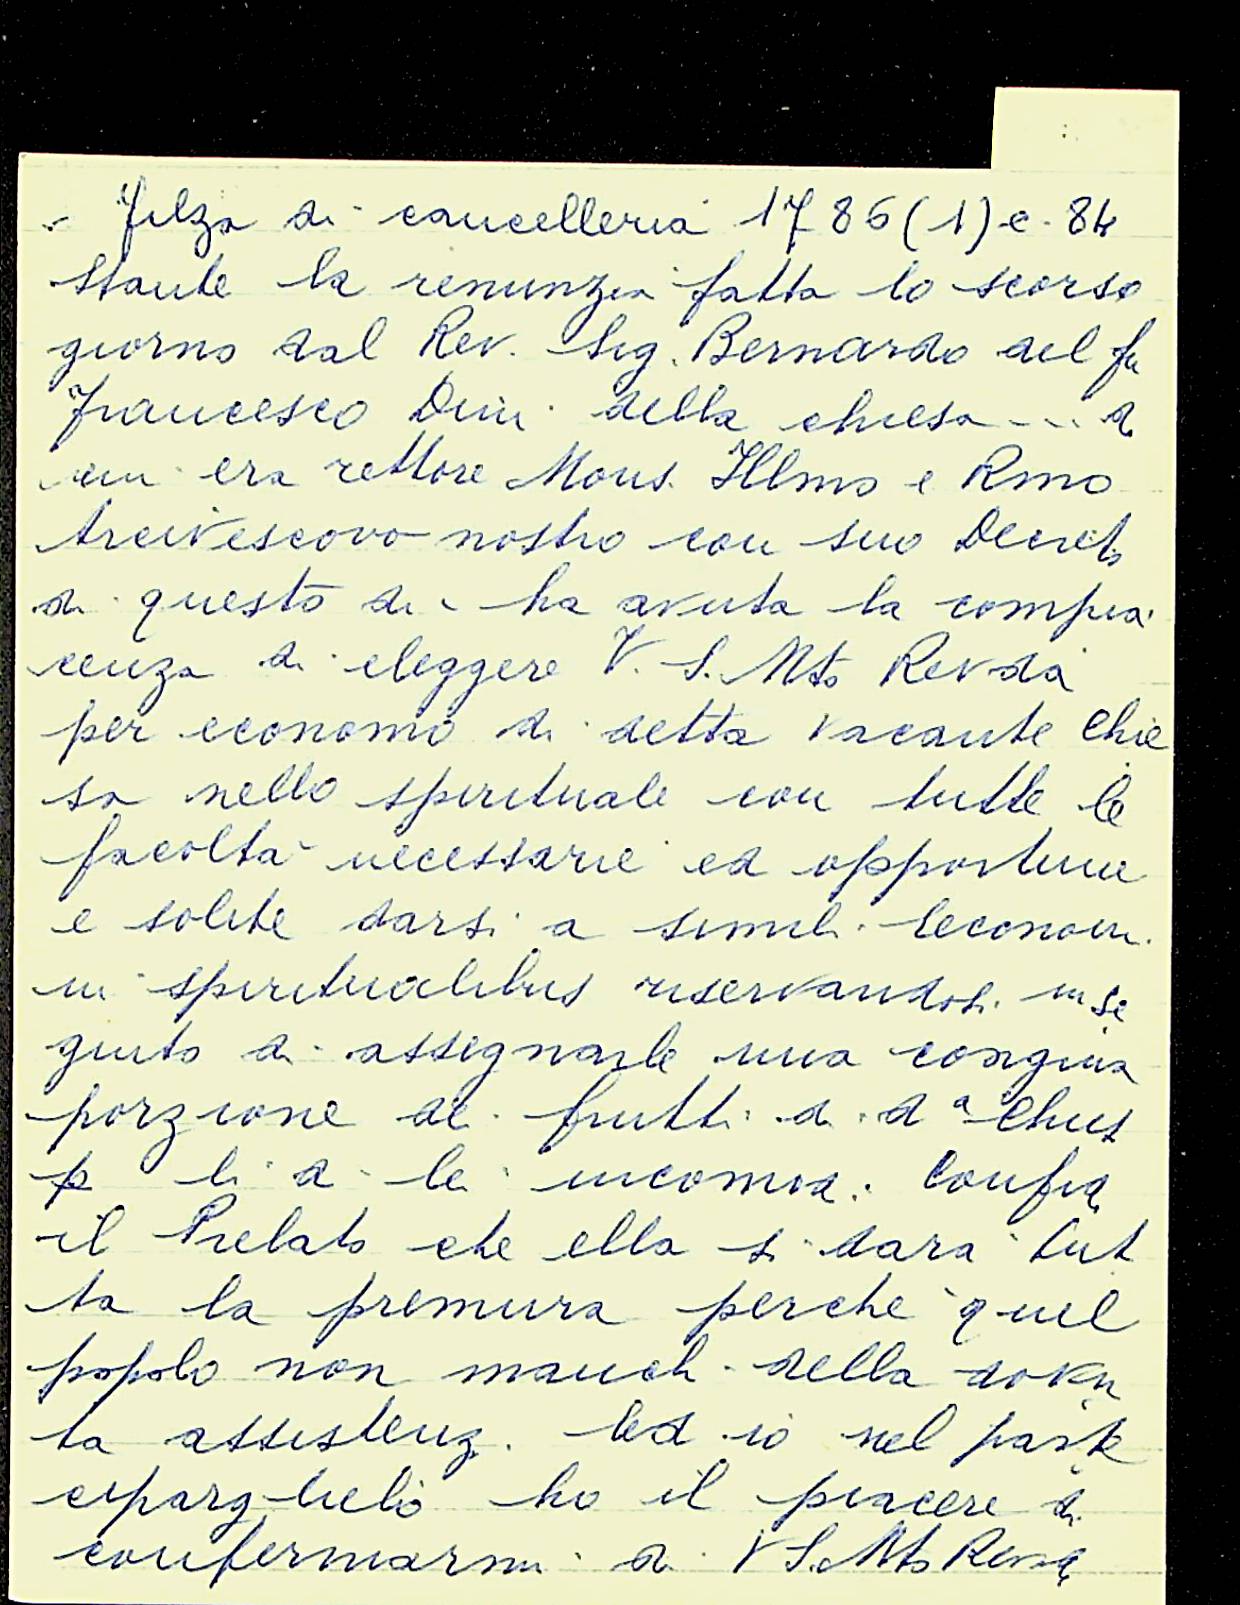 Filza di cancelleria 1786 (1) c. 84
Stante la renunzia fatta lo scorso
giorno dal Rev. Sig. Bernardo del fu
Francesco Dini della chiesa --- di
cui era rettore Mons. Illmo e Rmo
Arcivescovo nostro con suo Decreto
di questo dì ha avuta la compia
cenza di eleggere V. S. Mto Revda
per economo di detta vacante chie
sa nello spirituale con tutte le
facoltà necessarie ed opportune
e solite darsi a simili Economi
in spiritualibus riservandosi in se
guito di assegnarle una congrua
porzione dei frutti di da Chiesa
p li di lei incomodi. Confida
il Prelato che ella si darà tut
ta la premura perchè quel
popolo non manchi della dovu
ta assistenza. Ed io nel parte
ciparglielo ho il piacere di
confermarmi di V S. Mto Revda